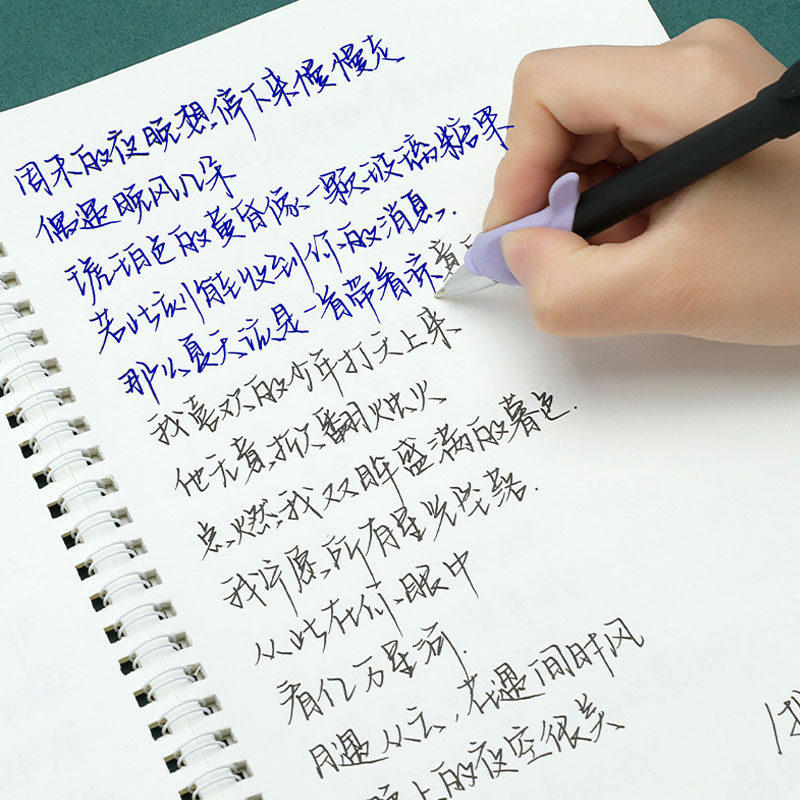 周末的夜晚想停下来慢慢走
偶遇晚风几朵
琥珀色的黄昏像一颗玻璃糖果
若此刻能收到你的消息.
那么夏天该是一首带着凉意
我喜欢的少年打天上来
他无意打翻烛火
点燃我双眸盛满的暮色.
我许愿所有星光坠落.
从此在你眼中
看亿万星河.
月遇从云,花遇和风
晚上的夜空很美